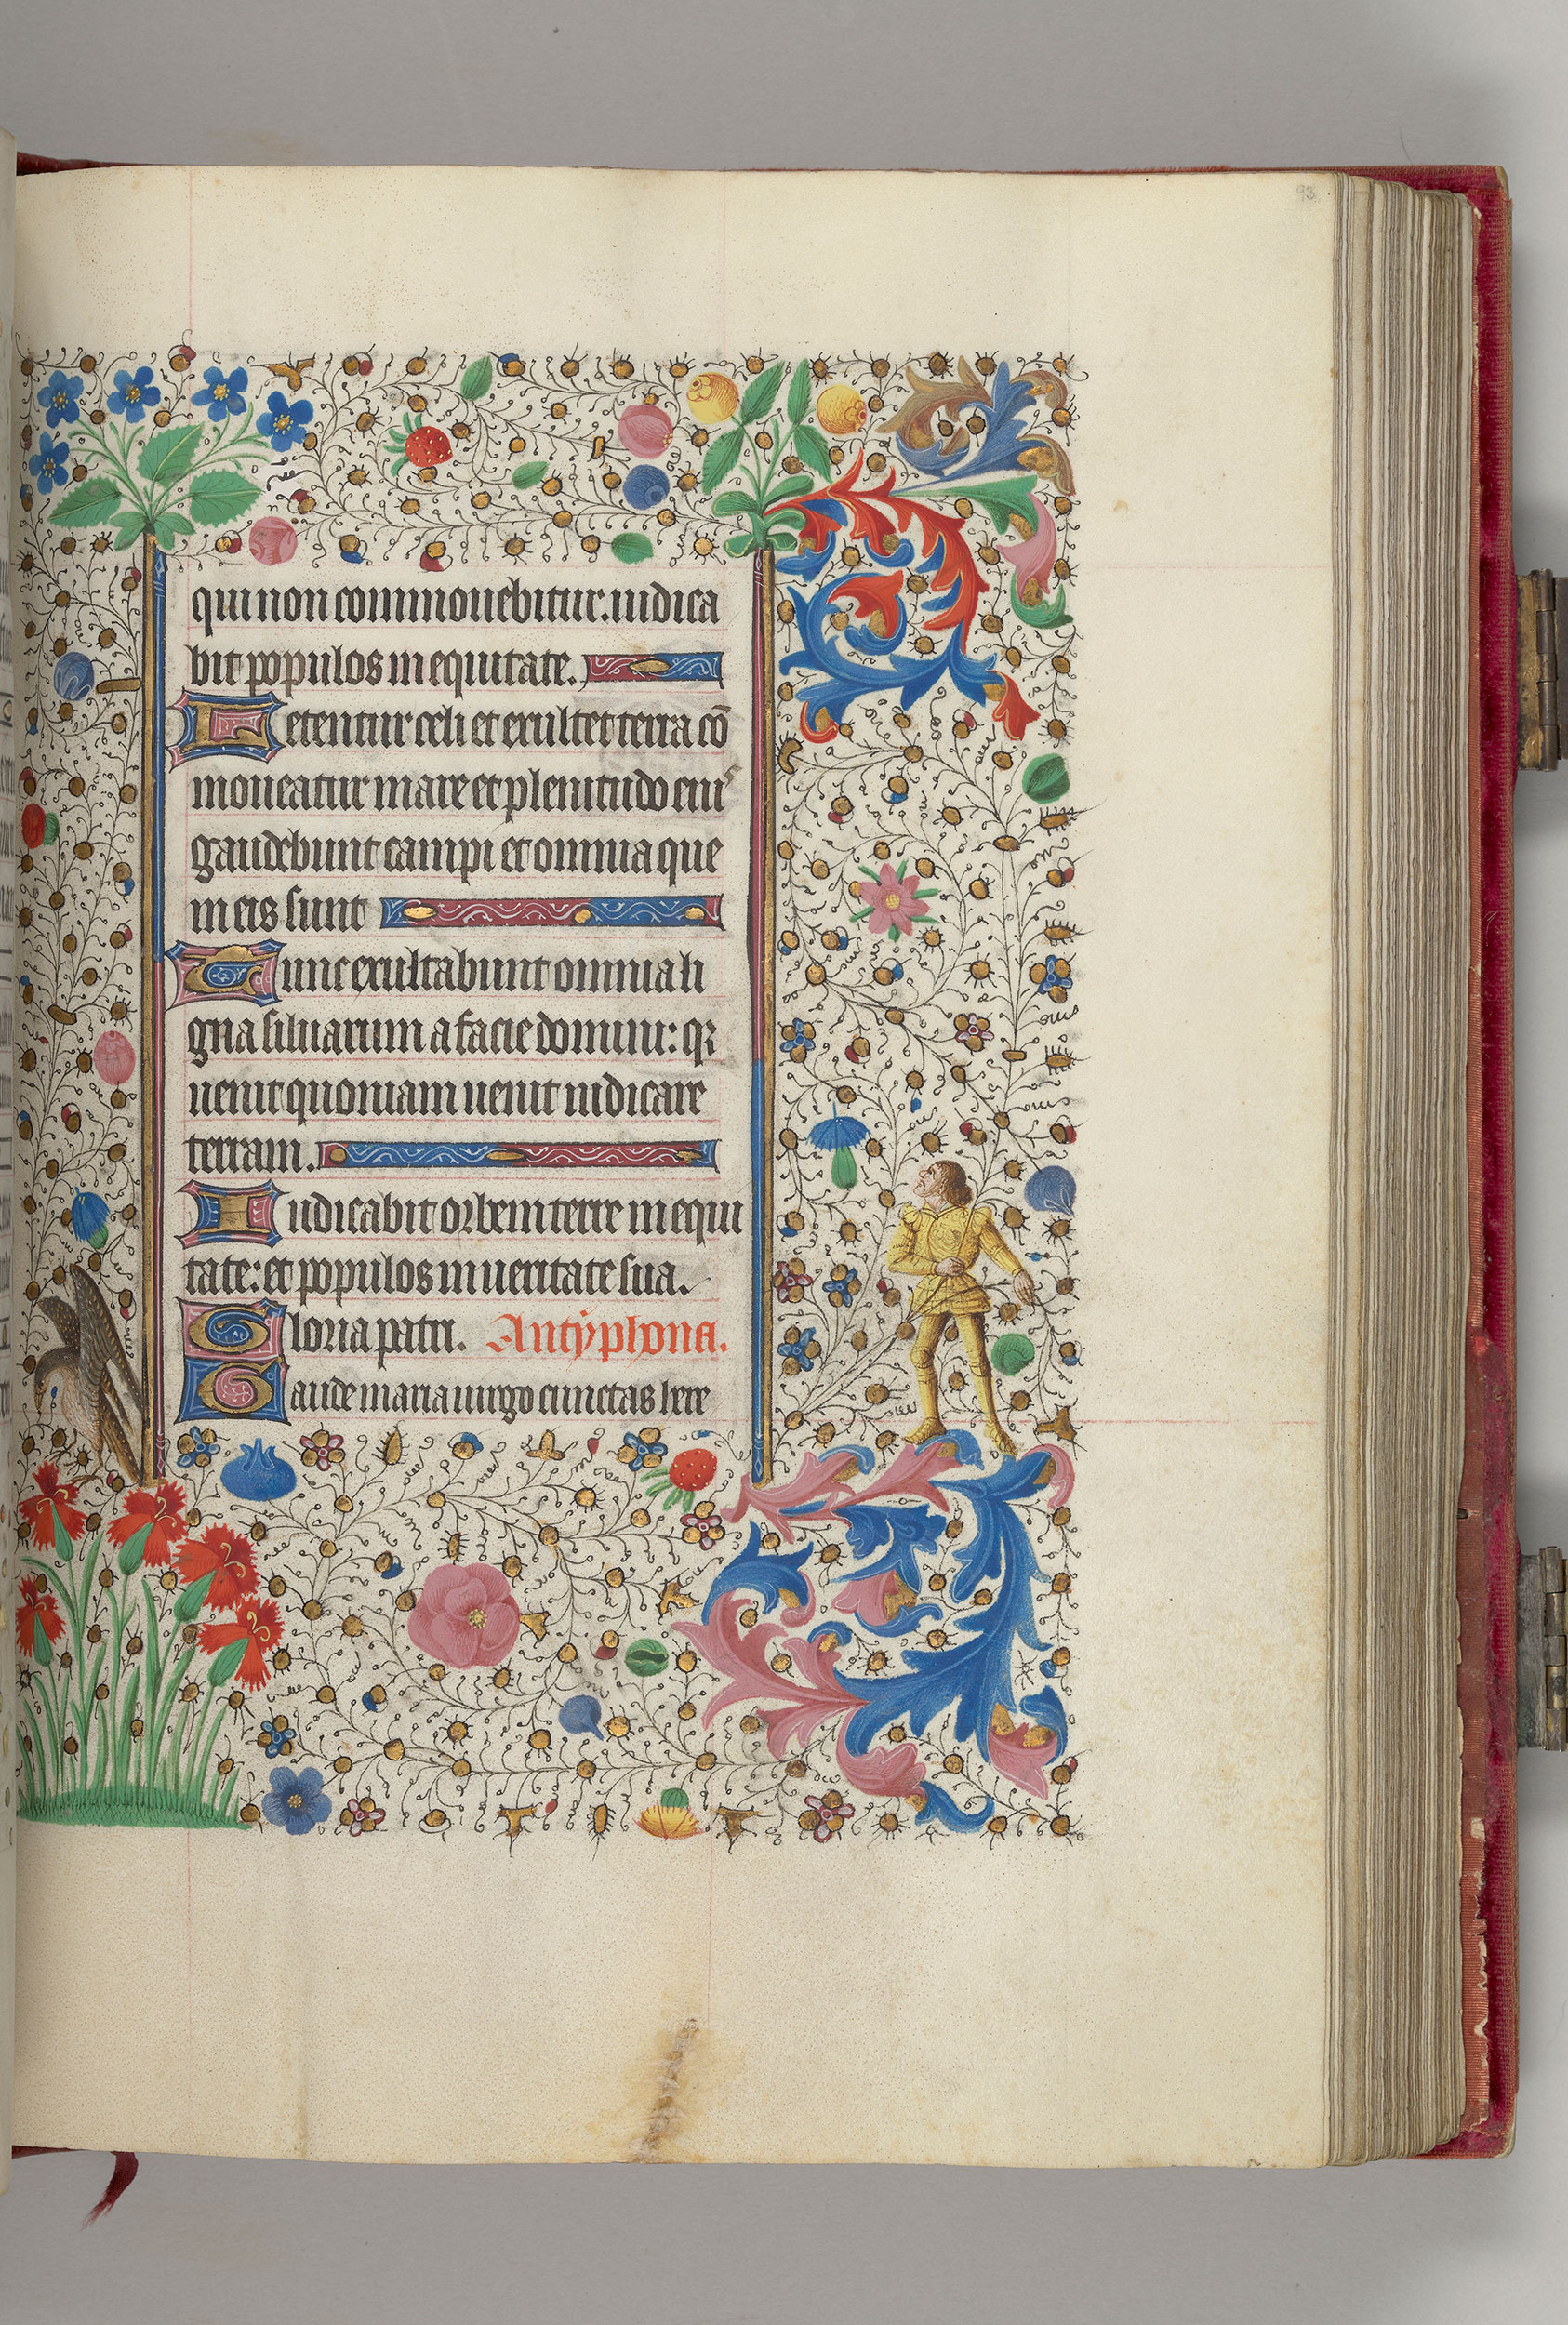 93
qui non commouebitur. iudica
bit populos in equitate.
Letentur celi et exultet terra cō
moueatur mare et plenitudo eius
gaudebunt campi et omnia que
in eis sunt
Tunc exultabunt omnia li
gna siluarum a facie domini: qr
uenit quoniam uenit iudicare
terram.
Iudicabit orbem terre in equi
tate: et populos in ueritate sua.
Gloria patri. Antyphona.
Gaude maria uirgo cunctas here